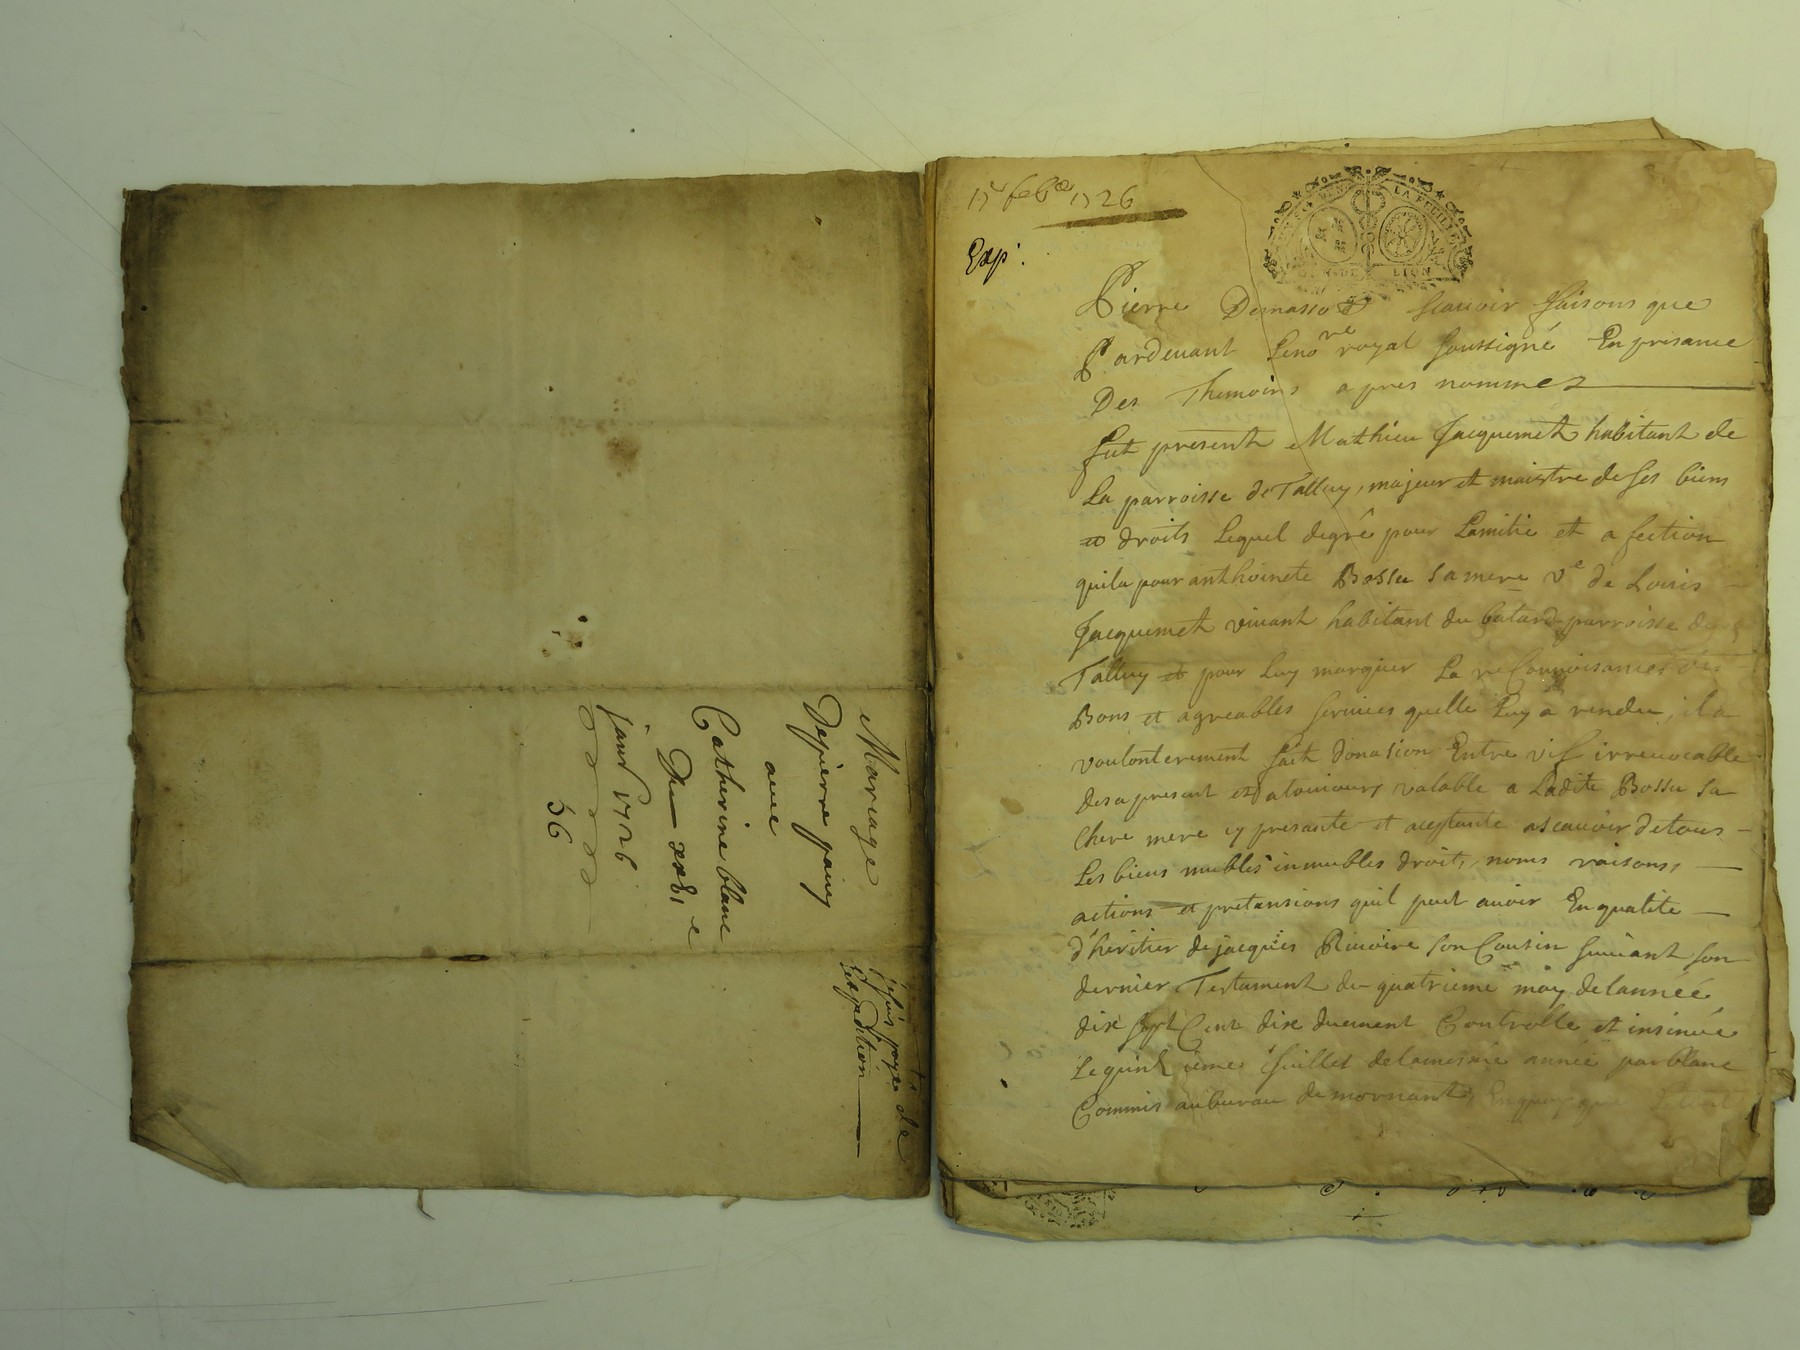 Mariage
De pierre paivy
avec
Catherine blanc
Du xx8e
janv 1726
36
jesuis payez de
Lexpedition
17 feb 1726
Exp.
LA FEUILLE
LION
Pierre Demasso Scavoir faisons que
Pardevant Leno.re royal soussigné En prisance
Des Themoins apres nommez
fut present Mathieu Jacquemet habitant de
La parroisse de Talluy, majeur et maistre de ses biens
et droits Lequel degré pour Lamitie et afection
quila pour anthoinete Bossu sa mere Ve de Louis
Jacquemet vivant habitant du batard parroisse de
Talluy et pour Luy marquer La reConnoisances des
Bons et agreables services quelle Luy a rendu, il a
voulonterement fait donasion Entre vif irrevocable
des a present et atoniours valable a Ladite Bossu sa
Chere mere cy presante et aceptante ascavoir de tous
Les biens mubles inmubles droits, noms raisons,
actions et pretansions quil peut avoir En qualite
d'heritier de jacques Rivoire son Cousin suivant son
dernier Testament du quatrieme may de lanneé
dixe sept Cent dixe duement Controlle et insinué
Le quinzieme Juillet de lamesme anneé par blanc
Commis au bureau de mornant, En quoy que